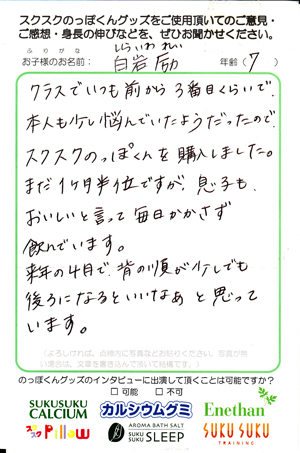 スクスクのっぽくんグッズをご使用頂いてのご意見・
ご感想・身長の伸びなどを、ぜひお聞かせください。
ふりがな
しらいわ れい
お子様のお名前: 白岩 励 年齢( 7 )
クラスでいつも前から3番目くらいで、
本人も少し悩んでいたようだったので、
スクスクのっぽくんを購入しました。
まだ1ヶ月半位ですが、息子も、
おいしいと言って毎日かかさず
飲んでいます。
来年の4月で、背の順が少しでも
後ろになるといいなぁと思って
います。
(よろしければ、点線内に写真などお貼りください。写真が無
い場合は、文章を書き込んで頂いて結構です。)
のっぽくんグッズのインタビューに出演して頂くことは可能ですか?
□可能 □不可
SUKUSUKU CALCIUM
カルシウムグミ
Enethan
スクスク Pillow
AROMA BATH SALT
SUKU SUKU SLEEP
SUKU SUKU
TRAINING